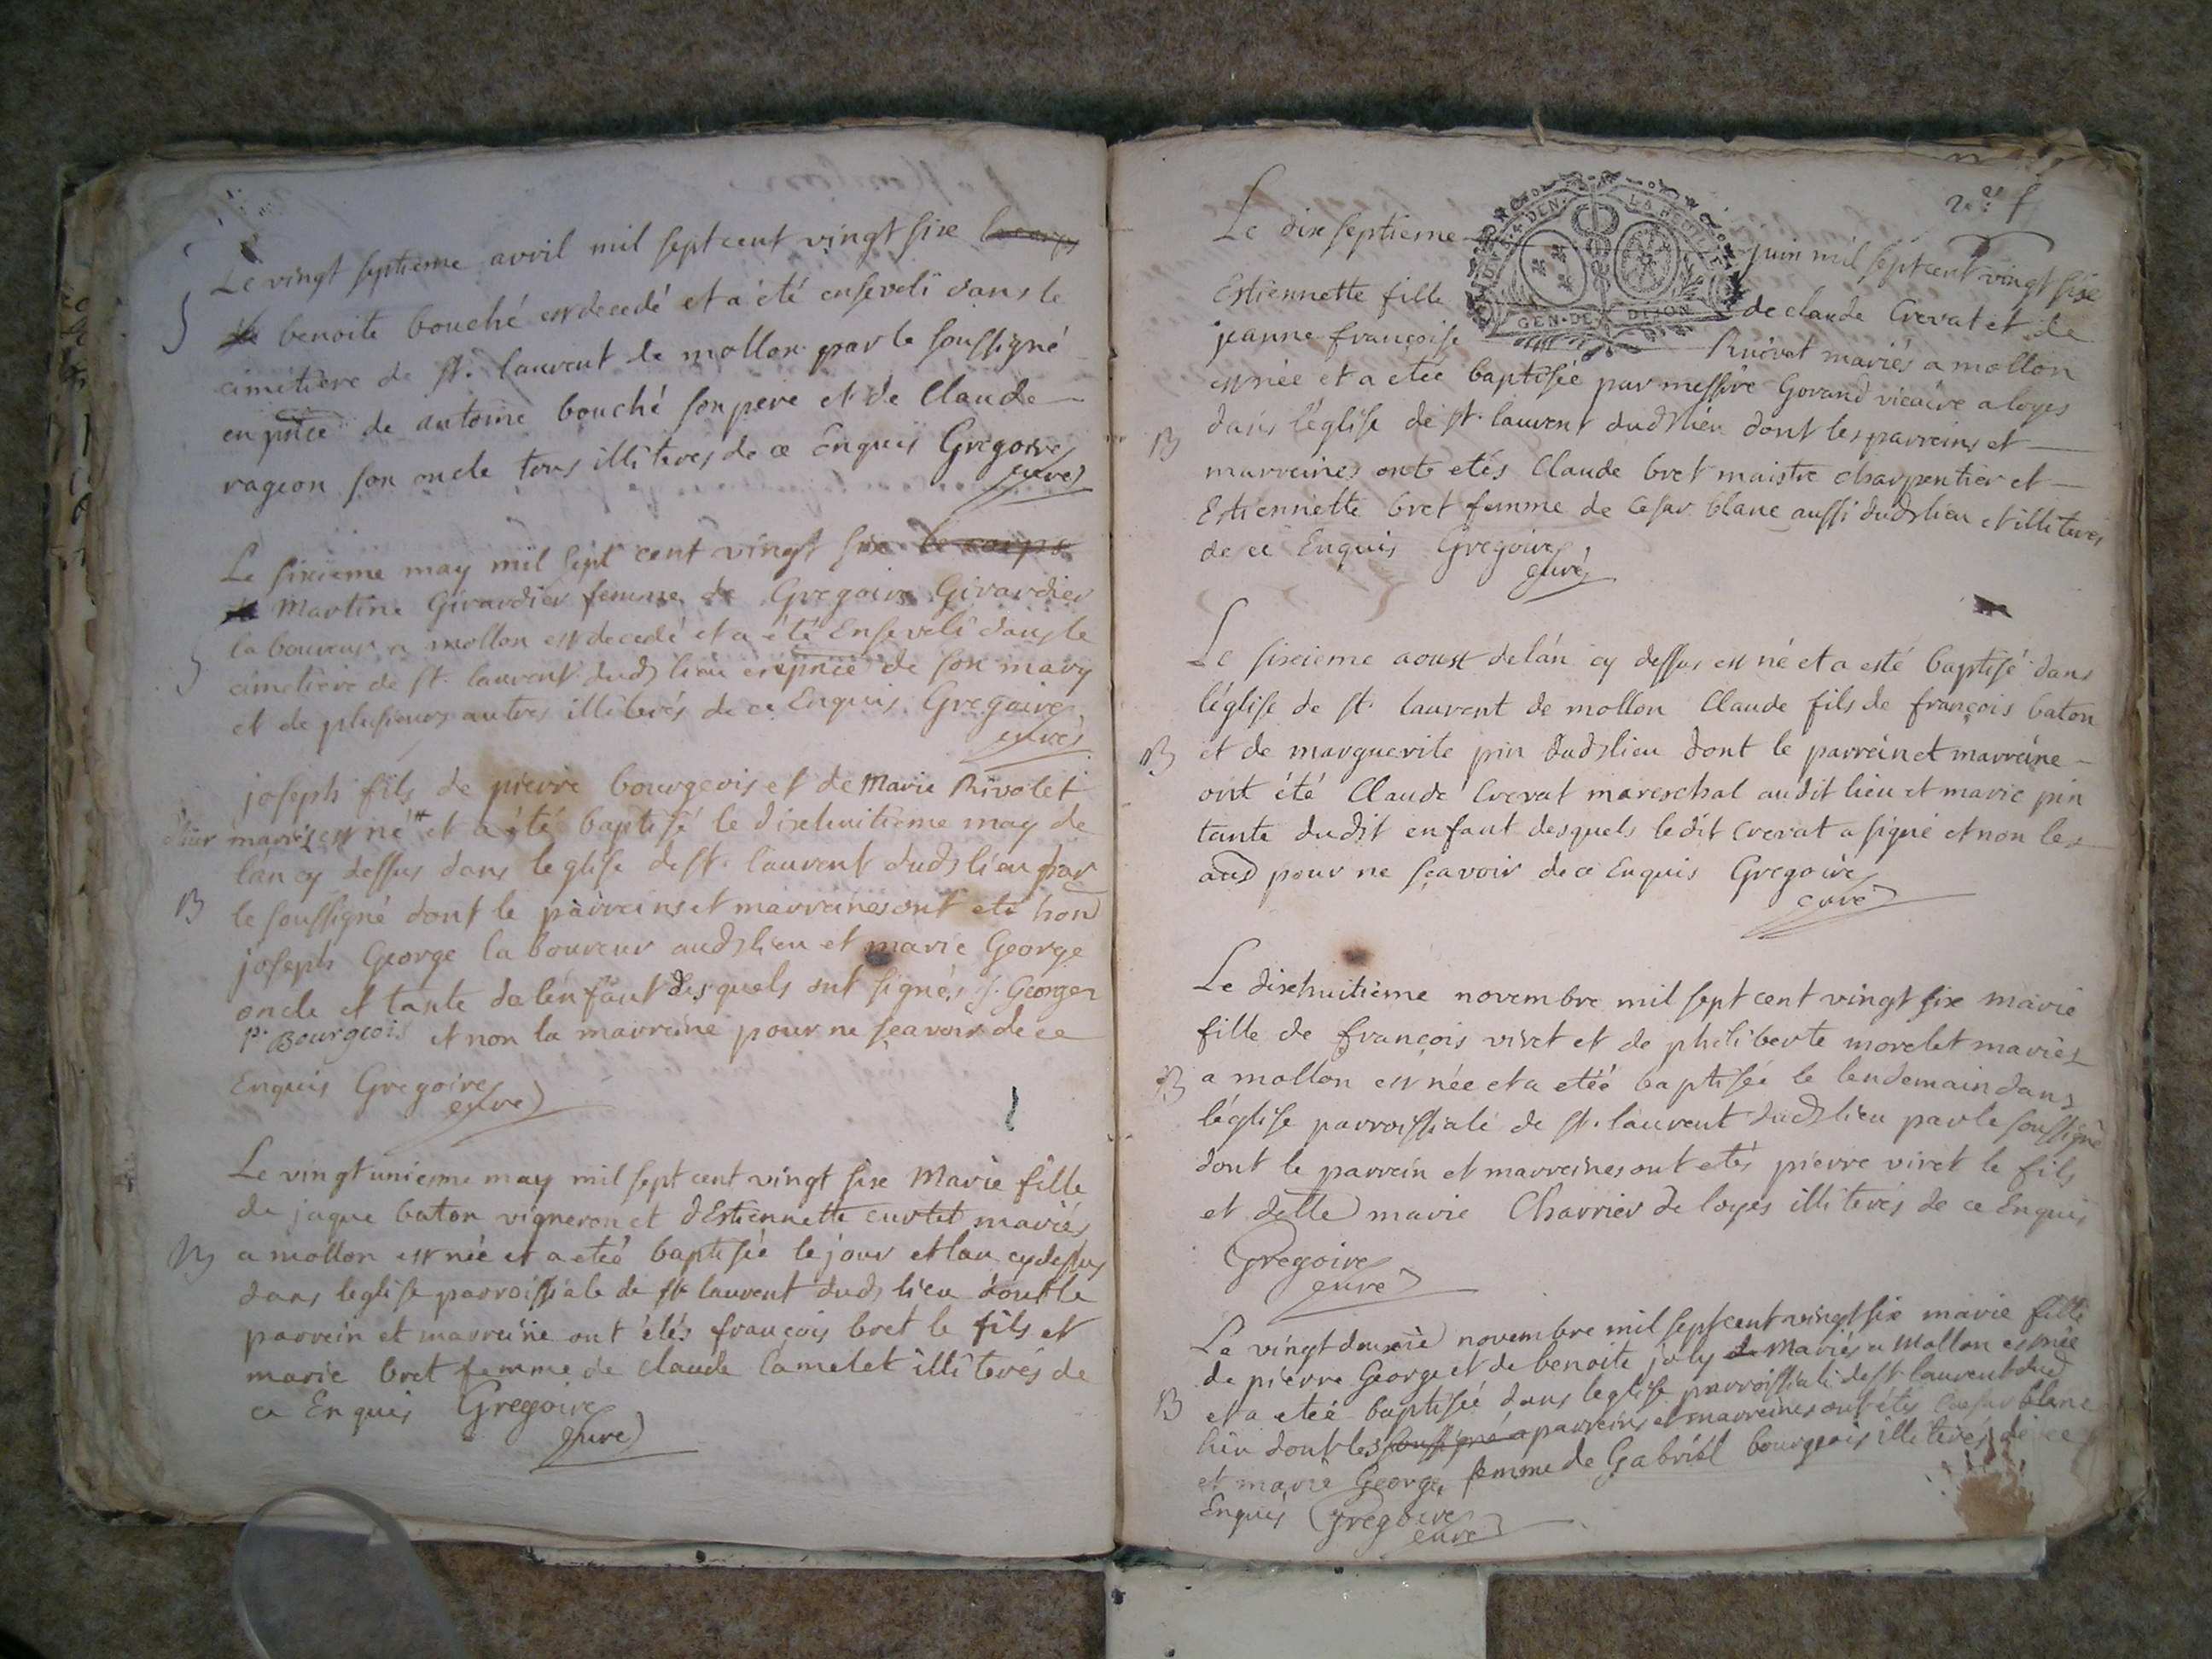 Le vingt septieme avril mil sept cent vingt sixe le corps
de benoite bouché est decedé et a été enseveli dans le
cimetiere de st. laurent de mollon par le soussigné
en pnce de antoine bouché son pere et de Claude
rageon son oncle tous illiteres de ce Enquis Gregoire
curé
Le sixieme may mil sept cent vingt sixe le corps
de Martine Girardier femme de Gregoire Girardier
laboureur a mollon est decedé et a été Enseveli dans le
cimetiere de st. laurent dud lieu en pnce de son mary
et de plusieurs autres illiterés de ce Enquis Gregoire
curé
joseph fils de pierre bourgeois et de Marie Rivolet
mariés est né et a été baptisé le dixhuitieme may de
lan cy dessus dans leglise de st. laurent dud lieu par
B
le soussigné dont le parreins et marreines ont eté hon
joseph George laboureur aud lieu et marie George
oncle et tante de lenfant desquels ont signés J. George
p. Bourgeois et non la marreine pour ne sçavoir de ce
Enquis Gregoire
curé
Le vingt unieme may mil sept cent vingt sixe Marie fille
de jaque baton vigneron et dEstiennette curtet mariés
B
a mollon est née et a eteé baptisée le jour et lan cy dessus
dans leglise parroissiale de st laurent dud lieu dont le
parrein et marreine ont étés françois bret le fils et
marie bret femme de claude Camelet illiterés de
ce Enquis Gregoire
curé
GEN. DE DIJON
Le dix septieme juin mil sept cent vingt sixe
Estiennette fille de claude Crevat et de
jeanne françoise Ruivet mariés a mollon
est née et a eteé baptisée par messire Govand vicaire a loyes
dans léglise de st. laurent dud lieu dont les parreins et
B
marreines ont etés Claude bret maistre charpentier et
Estiennette bret femme de Cesar blanc aussi dud lieu et illiteres
de ce Enquis Gregoire
curé
Le sixieme aoust de lán cy dessus est né et a esté baptisé dans
léglise de st. laurent de mollon Claude fils de françois baton
B
et de marguerite pin dud lieu dont le parrein et marreine
ont été Claude Crevat mareschal au dit lieu et marie pin
tante dudit enfant desquels ledit Crevat a signé et non les
aus pour ne sçavoir de ce Enquis Gregoire
curé
Le dixhuitieme novembre mil sept cent vingt sixe marie
fille de françois viret et de philiberte morelet mariés
B
a mollon est née et a eteé baptisée le lendemain dans
léglise parroissiale de st. laurent dud lieu par le soussigné
dont le parrein et marreines ont etés pierre viret le fils
et delle marie Charrier de loyes illiterés de ce Enquis
Gregoire
curé
Le vingt deuxie novembre mil sept cent vingt sixe marie fille
de pierre George et de benoite joly de Mariés a Mollon est née
B
et a eteé baptisée dans leglise parroissiale de st laurent dud
lieu dont les soussigné a parreins et marreines ont étés Caesar blanc
et marie George femme de Gabriel bourgeois illiterés de ce
Enquis Gregoire
curé